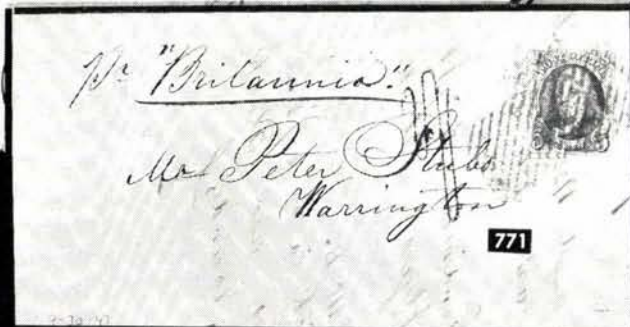 pr "Britannia."
Mr Peter Stubs
Warrington
771